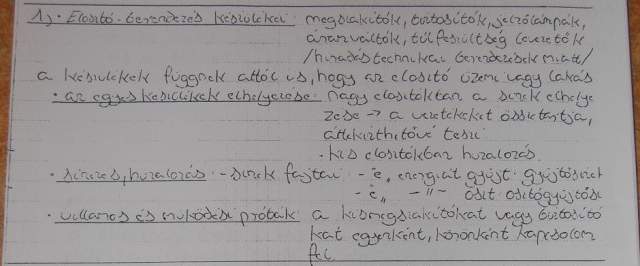 1, • Elosztó-berendezés készülékei: megszakítók, biztosítók, jelzőlámpák,
áramváltók, túlfeszültség levezetők
/híradástechnikai berendezések miatt/
a készülékek függnek attól is, hogy az elosztó üzemi vagy lakás
• az egyes készülékek elhelyezése: nagy elosztókban a sinek elhelye
zése → a vezetékeket összetartja,
áttekinthetővé teszi
• kis elosztókban huzalozás
• sinezés, huzalozás: - sinek fajtái - e, energiát gyűjt: gyűjtősinek
- é, -"- oszt: osztógyűjtősi
• villamos és működési próták: a kismegszakítókat vagy biztosító
kat egyenként, körönként kapcsolom
fel